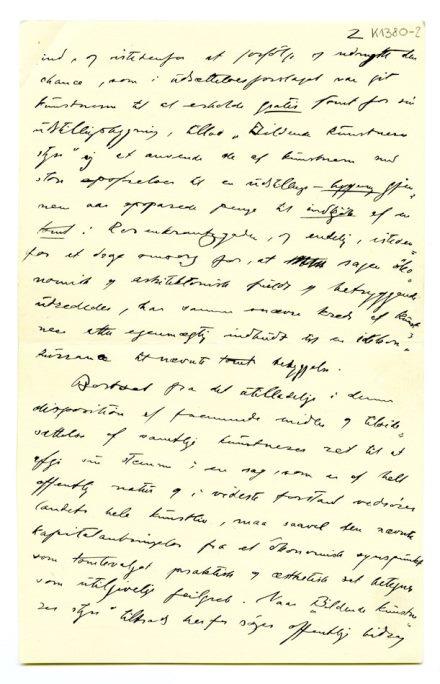 2 K1380-2
ind, og istedenfor at forfölge og udnytte den
chance, som i udsættelsesforslaget var git
kunstnerne til at erholde gratis tomt for sin
utstillingsbygning, tillod „Bildende kunstneres
styre" sig at anvende de af kunstnerne med
store opofrelser til en udstillings-bygning gjen-
nem aar opsparede penge til indkjöb af en
tomt i Rosenkrantzgaden, og endelig, isteden-
for at drage omsorg for, at sagen öko-
nomisk og arkitektonisk fuldt og betryggende
utreddes, har samme snævre kreds af kunst-
nere
konkurrance til nævnte tomts bebyggelse.
Bortset fra det utilstedelige i denne
disposition af fremmede midler og tilside-
sættelse af samtlige kunstneres ret til at
afgi sin stemme i en sag, som er af helt
offentlig natur og i videste forstand vedrörer
landets hele kunstliv, maa saavel den nævnte
kapitalanbringelse fra et ökonomisk synspunkt
som tomtevalget praktisk og æsthetisk set betegnes
som utilgivelig feilgreb. Naar „Bildende kunstne-
res styre" tiltrods herfor söger offentlig bidrag